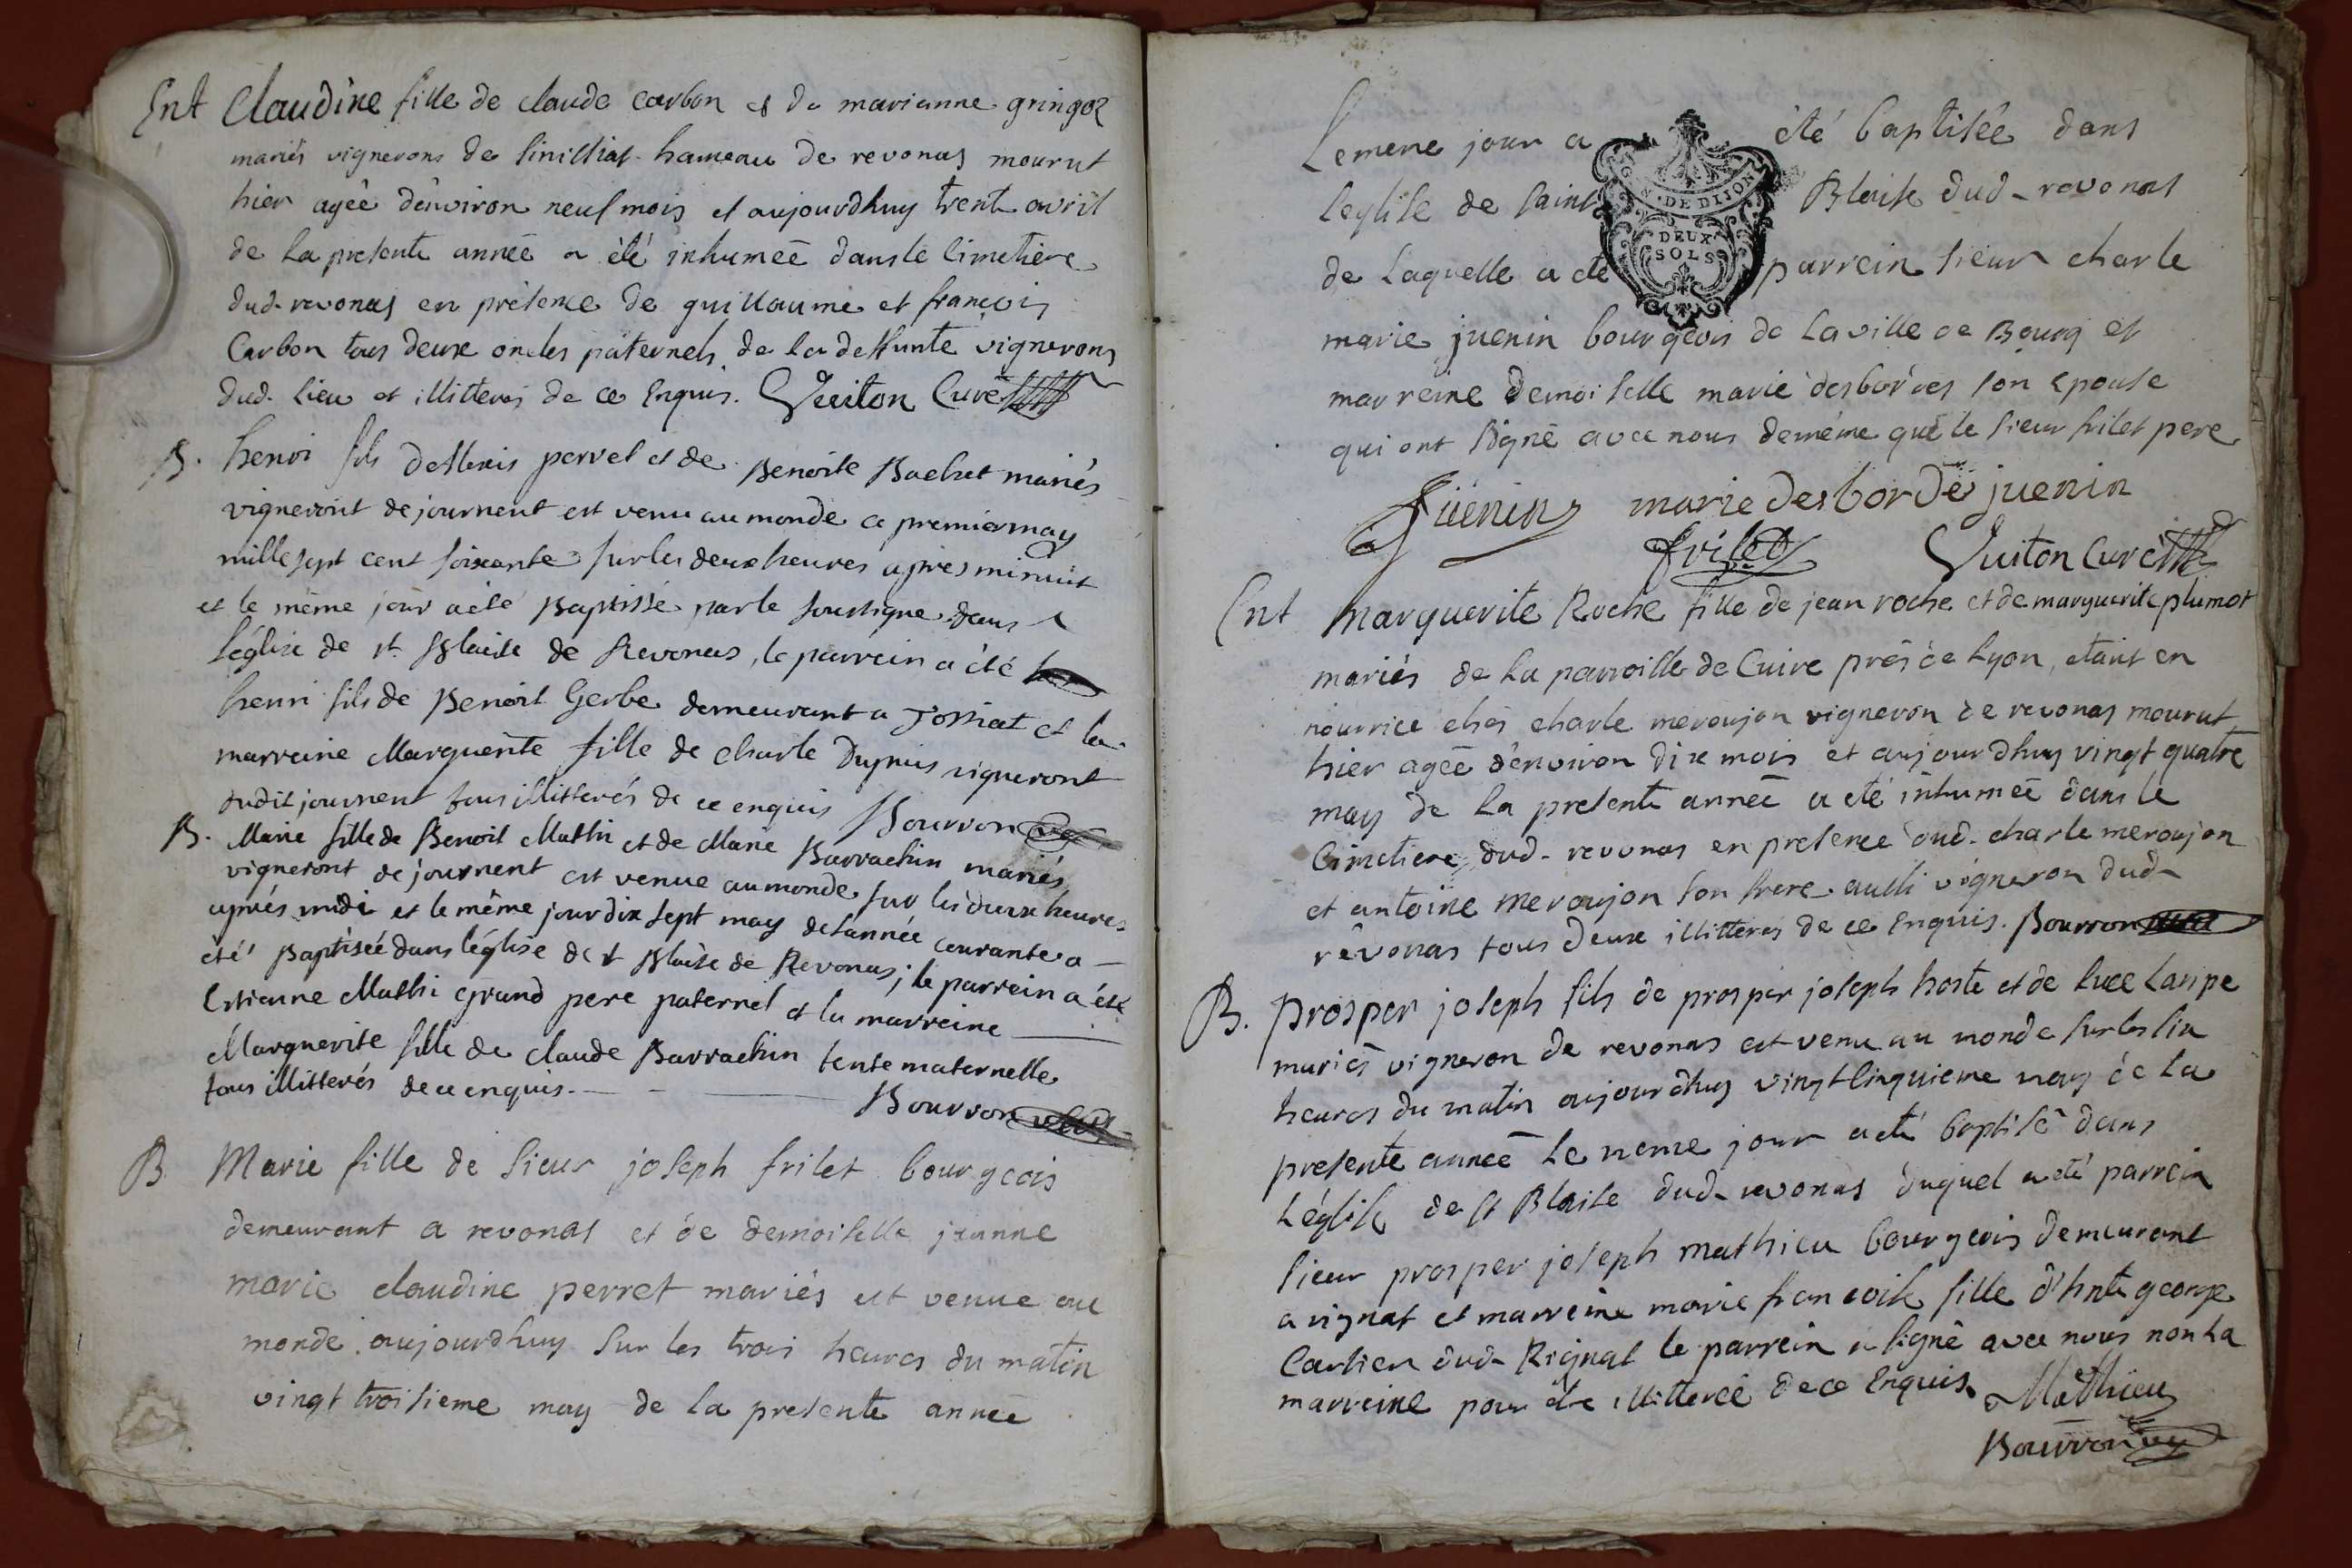 Ent Claudine fille de claude carbon et de marianne gringoz
mariés vignerons de sinissiat hameau de revonas mourut
hier agée d'environ neuf mois et aujourdhuy trente avril
de la presente année a été inhumée dans le Cimetiere
dud. revonas en présence de guillaume et françois
Carbon tous deux oncles paternels de la deffunte vignerons
dud. lieu et illitterés de ce Enquis. Vuiton Curé
B. henri fils d'Alexis pervel et de Benoite Bachet mariés
vigneront de journent est venu au monde ce premier may
mille sept cent soixante sur les deux heures après minuit
et le même jour a été Baptissé par le soussigne dans
l'église de st. Blaise de Revonas, le parrein a été
henri fils de Benoit Gerbe demeurant a Jossiat et la
marreine Marguerite fille de charle Dupuis vigneront
dudit journent tous illitterés de ce enquis Bourron
B. Marie fille de Benoit Mathi et de Marie Barrachin mariés
vigneront de journent est venue au monde sur les deux heures
après midi et le même jour dix sept may de l'année courante a
été Baptisée dans l'église de st Blaise de Revonas; le parrein a été
Etienne Mathi grand pere paternel et la marreine
Marguerite fille de claude Barrachin tente maternelle
tous illitterés de ce enquis. Bourron
B. Marie fille de sieur joseph frilet bourgeois
demeurant a revonas et de demoiselle jeanne
marie claudine perret mariés est venue au
monde aujourdhuy sur les trois heures du matin
vingt troisieme may de la presente année
Le meme jour a été baptisée dans
l'eglise de saint Blaise dud. revonas
de laquelle a été parrein sieur charle
marie juenin bourgeois de la ville de Bourg et
marreine demoiselle marie desbordes son epouse
qui ont signé avec nous de même que le sieur frilet pere
GEN. DE DIJON
DEUX
SOLS
Juenin marie desborde juenin
frilet Vuiton Curé
Ent Marguerite Roche fille de jean roche et de marguerite plumot
mariés de la parroisse de Cuire près de Lyon, etant en
nourrice chés charle meroujon vigneron de revonas mourut
hier agée d'environ dix mois et aujourdhuy vingt quatre
may de la presente année a été inhumée dans le
Cimetiere dud. revonas en presence dud. charle meroujon
et antoine meroujon son frere aussi vigneron dud.
révonas tous deux illitterés de ce Enquis. Bourron
B. prosper joseph fils de prosper joseph hoste et de luce
mariés vigneron de revonas est venu au monde sur les six
heures du matin aujourdhuy vingt cinquieme may de la
presente année le meme jour a été baptisé dans
L'église de st Blaise dud. revonas duquel a été parrein
sieur prosper joseph mathieu bourgeois demeurant
a rignat et marreine marie francoise fille d'hnte george
Carlier dud. Rignat le parrein a signé avec nous non la
marreine pour etre illitterée de ce Enquis. Mathieu
Bourron